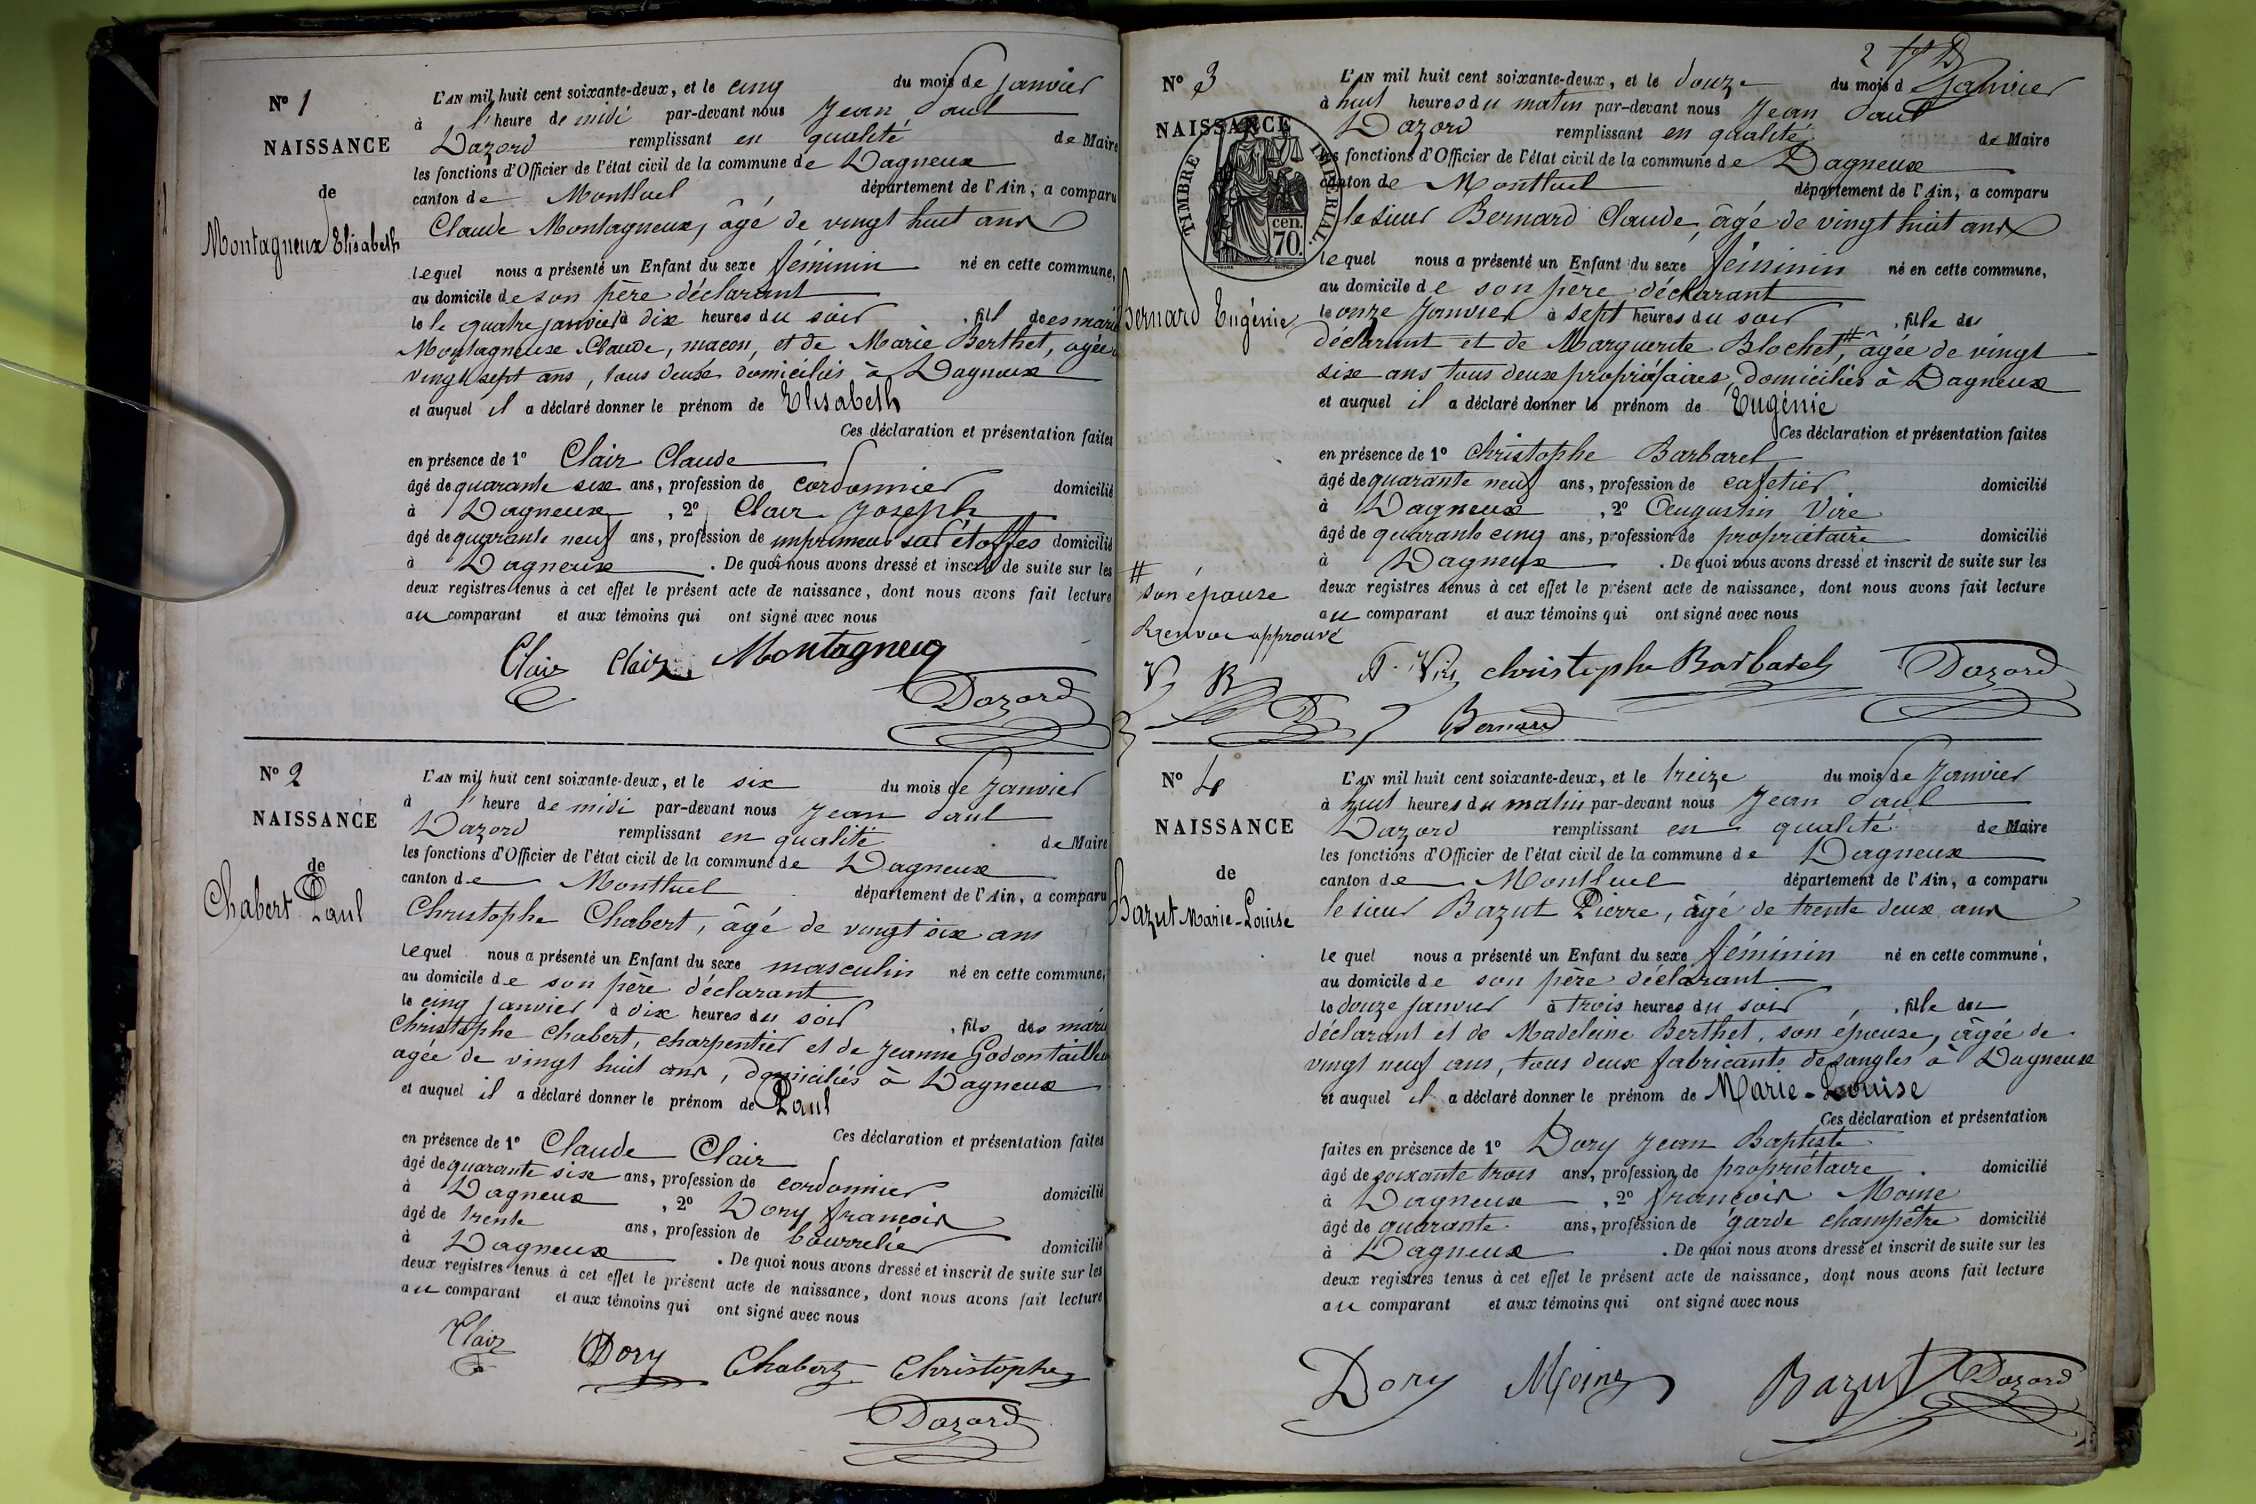 N° 1
NAISSANCE
de
Montagneux Elisabeth
L'AN mil huit cent soixante-deux, et le cinq du mois de janvier
à l'heure de midi par-devant nous Jean Paul
Dazord remplissant en qualité de Maire
les fonctions d'Officier de l'état civil de la commune de Dagneux
canton de Montluel département de l'Ain, a comparu
Claude Montagneux, âgé de vingt huit ans
lequel nous a présenté un Enfant du sexe féminin né en cette commune,
au domicile de son père déclarant
le le quatre janvier à dix heures du soir , fil des mariés
Montagneux Claude, maçon, et de Marie Berthet, agée de
vingt sept ans, tous deux domiciliés à Dagneux
et auquel il a déclaré donner le prénom de Elisabeth
Ces déclaration et présentation faites
en présence de 1° Clair Claude
âgé de quarante six ans, profession de cordonnier domicilié
à Dagneux , 2° Clair Joseph
âgé de quarante neuf ans, profession de imprimeur sur étoffes domicilié
à Dagneux . De quoi nous avons dressé et inscrit de suite sur les
deux registres tenus à cet effet le présent acte de naissance, dont nous avons fait lecture
au comparant et aux témoins qui ont signé avec nous
Clair Clair Montagneux
Dazord
N° 2
NAISSANCE
de
Chabert Paul
L'AN mil huit cent soixante-deux, et le six du mois de janvier
à l'heure de midi par-devant nous Jean Paul
Dazord remplissant en qualité de Maire
les fonctions d'Officier de l'état civil de la commune de Dagneux
canton de Montluel département de l'Ain, a comparu
Christophe Chabert, âgé de vingt six ans
lequel nous a présenté un Enfant du sexe masculin né en cette commune,
au domicile de son père déclarant
le cinq janvier à dix heures du soir , fils des mariés
Christophe Chabert, charpentier et de Jeanne Godon
agée de vingt huit ans, domiciliés à Dagneux
et auquel il a déclaré donner le prénom de Paul
Ces déclaration et présentation faites
en présence de 1° Claude Clair
âgé de quarante six ans, profession de cordonnier domicilié
à Dagneux , 2° Dory françois
âgé de trente ans, profession de bourrelier domicilié
à Dagneux . De quoi nous avons dressé et inscrit de suite sur les
deux registres tenus à cet effet le présent acte de naissance, dont nous avons fait lecture
au comparant et aux témoins qui ont signé avec nous
Clair Dory Chabert Christophe
Dazord
2
N° 3
NAISSANCE
TIMBRE IMPERIAL.
70. cen.
Bernard Eugénie
L'AN mil huit cent soixante-deux, et le douze du mois d Janvier
à huit heures du matin par-devant nous Jean Paul
Dazord remplissant en qualité de Maire
les fonctions d'Officier de l'état civil de la commune de Dagneux
canton de Montluel département de l'Ain, a comparu
le sieur Bernard Claude, âgé de vingt huit ans
lequel nous a présenté un Enfant du sexe féminin né en cette commune,
au domicile de son père déclarant
le onze Janvier à sept heures du soir , fille du
déclarant et de Marguerite Blochet,# âgée de vingt
six ans tous deux propriétaires, domiciliés à Dagneux
et auquel il a déclaré donner le prénom de Eugénie
Ces déclaration et présentation faites
en présence de 1° Christophe Barbaret
âgé de quarante neuf ans, profession de cafetier domicilié
à Dagneux , 2° Augustin Viré
âgé de quarante cinq ans, profession de propriétaire domicilié
à Dagneux . De quoi nous avons dressé et inscrit de suite sur les
deux registres tenus à cet effet le présent acte de naissance, dont nous avons fait lecture
au comparant et aux témoins qui ont signé avec nous
# son épouse
Renvoi approuvé
V B
D
Christophe Barbaret Dazord
Bernard
N° 4
NAISSANCE
de
Bazut Marie-Louise
L'AN mil huit cent soixante-deux, et le treize du mois de Janvier
à huit heures du matin par-devant nous Jean Paul
Dazord remplissant en qualité de Maire
les fonctions d'Officier de l'état civil de la commune de Dagneux
canton de Montluel département de l'Ain, a comparu
le sieur Bazut Pierre, âgé de trente deux ans
lequel nous a présenté un Enfant du sexe féminin né en cette commune,
au domicile de son père déclarant
le douze janvier à trois heures du soir , fille du
déclarant et de Madeleine Berthet, son épouse, âgée de
vingt neuf ans, tous deux fabricants de sangles à Dagneux
et auquel il a déclaré donner le prénom de Marie-Louise
Ces déclaration et présentation
faites en présence de 1° Dory Jean Baptiste
âgé de soixante trois ans, profession de propriétaire domicilié
à Dagneux , 2° françois Moine
âgé de quarante ans, profession de garde champêtre domicilié
à Dagneux . De quoi nous avons dressé et inscrit de suite sur les
deux registres tenus à cet effet le présent acte de naissance, dont nous avons fait lecture
au comparant et aux témoins qui ont signé avec nous
Dory Moine Bazut Dazord